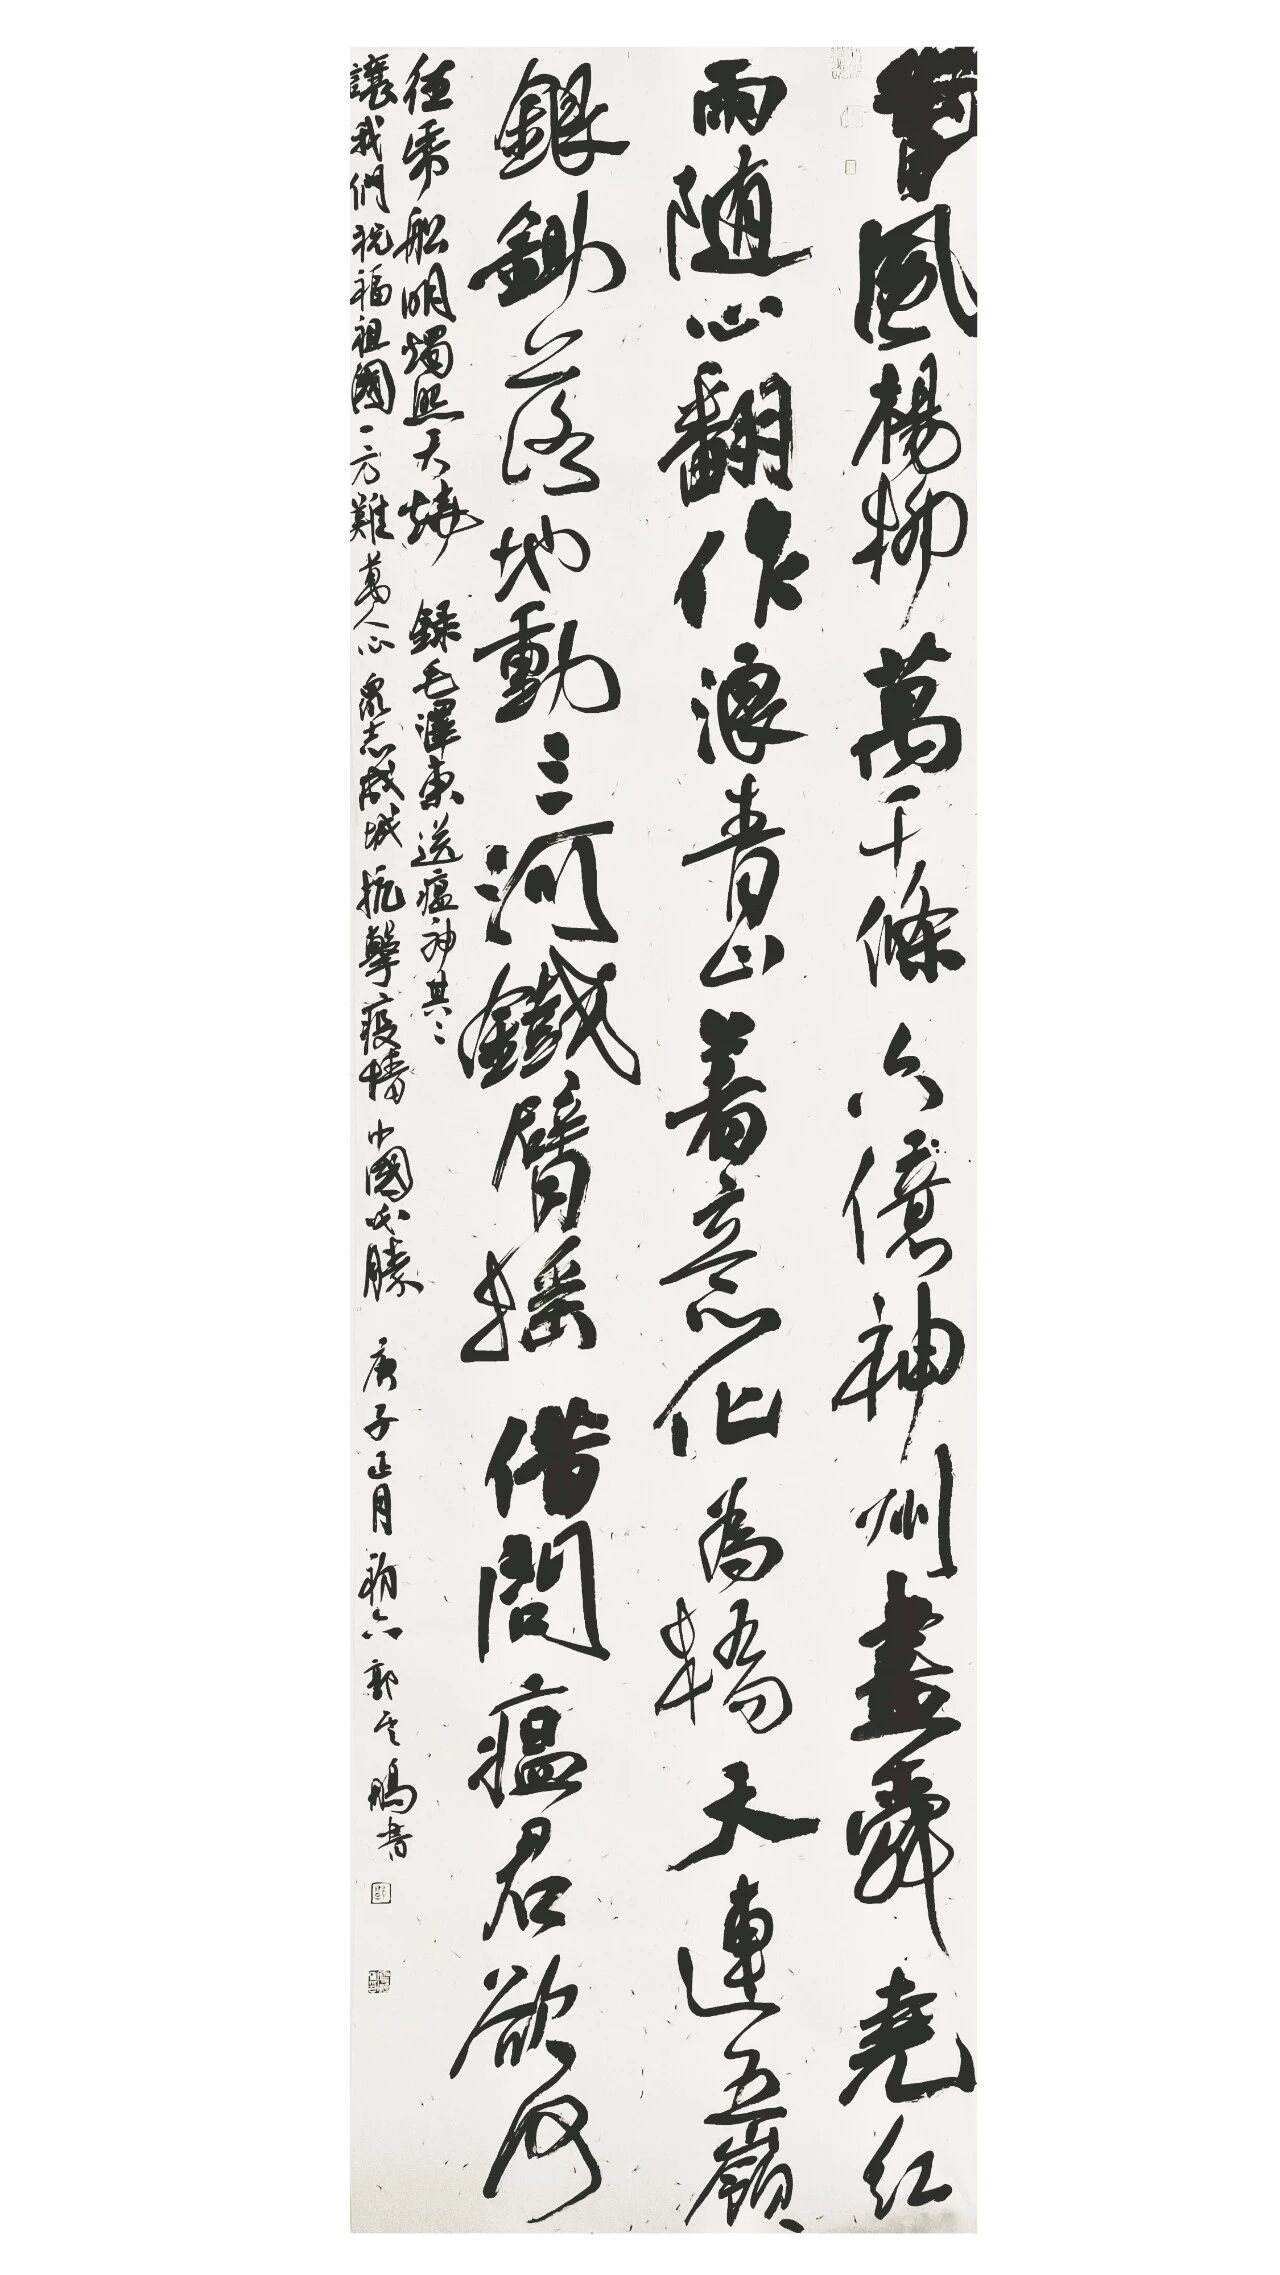 春風楊柳萬千條六億神州盡舜堯紅
雨随心翻作浪青山着意化為橋天連五嶺
銀鋤落地動三河鐵臂摇借問瘟君欲何
往紙船明燭照天燒 録毛澤東送瘟神其二
讓我們祝福祖國一方難萬人心衆志成城抗擊疫情中國必勝 庚子正月初六郭雲鵬書